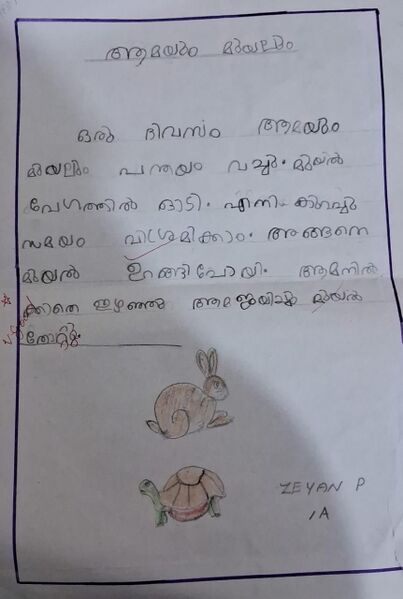 ആമയും മുയലും
ഒരു ദിവസം ആമയും
മുയലും പന്തയം വച്ചു. മുയൽ
വേഗത്തിൽ ഓടി. എനി കുറച്ചു
സമയം വിശ്രമിക്കാം. അങ്ങനെ
മുയൽ ഉറങ്ങിപോയി. ആമനിൽ
ക്കാതെ ഇഴഞ്ഞു ആമജയിച്ചു മുയൽ
തോറ്റു.
ZEYAN P
1A